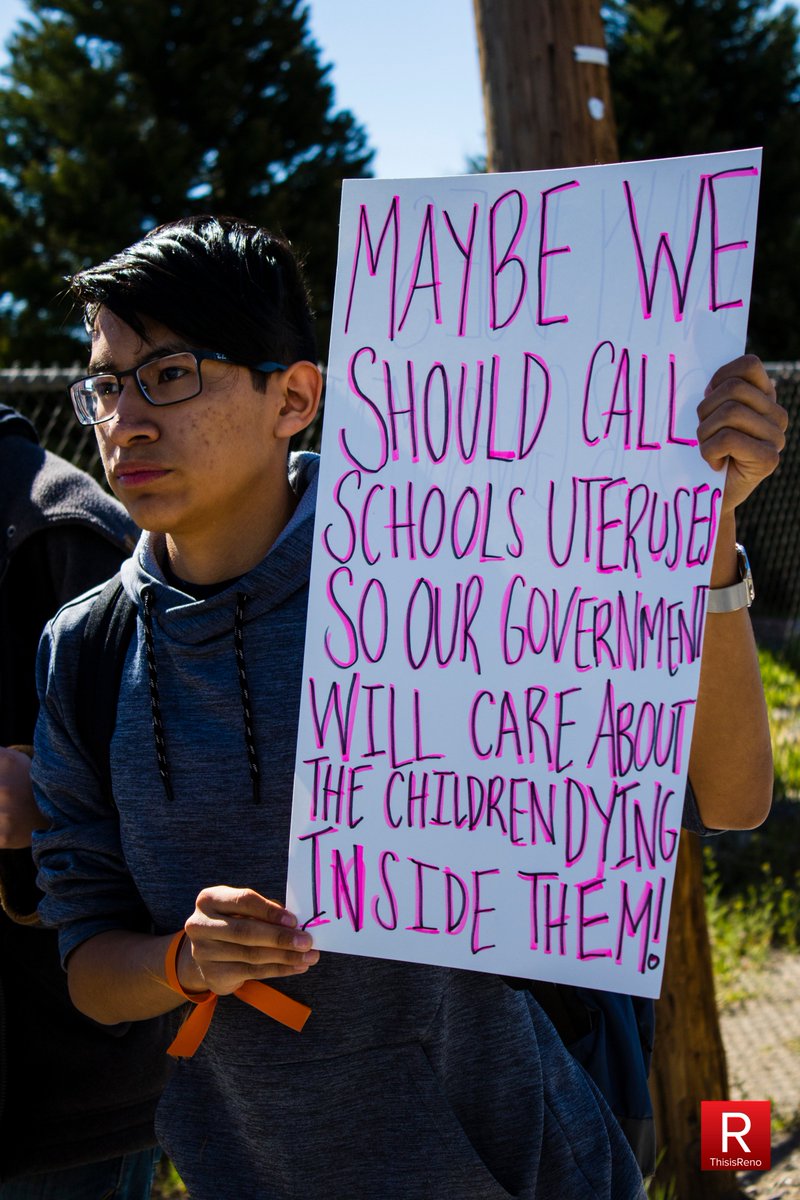 MAYBE WE
SHOULD CALL
SCHOOLS UTERUSES
SO OUR GOVERNMENT
WILL CARE ABOUT
THE CHILDREN DYING
INSIDE THEM!
R
ThisisReno